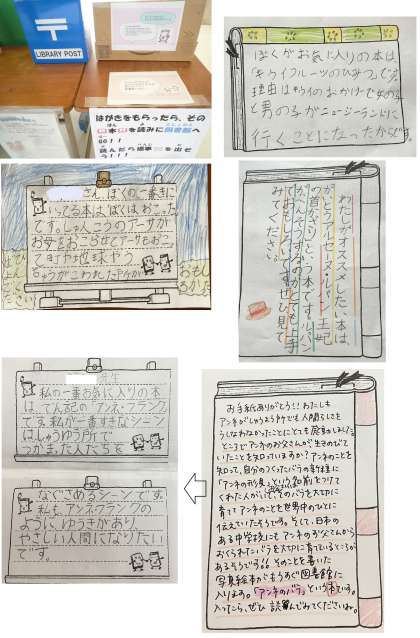 LIBRARY POST
はがきをもらったら、その
本を読みに図書館へ
GO!!
読んだら
を出そ
う!!!
ぼくがお気に入りの本は、
「キウイフルーツのひみつ」です。
理由はキウイのおかげで女の子
と男の子がニュージーランドに
行くことになったからです。
さん、ぼくの一番きに
いってる本は、ぼくはおこった
です。しゅんこうのアーサが
お母をおこらせてアーサもおこ
てまちや地球やう
ちゅうがこわれた
わたしがオススメしたい本は、
かいとうアルセーヌ・ルパン「王妃
の首かざり」という本です。ルパン
がへんそうするのがとても上手
ておもしろいです。ぜひ見て
みてください。
先生
私の一番お気に入りの本
は、でん記の「アンネ・フランク」
です。私が一番すきなシーン
は、しゅうよう所で
つかまった人たちを
なぐさめるシーンです。
私も、アンネ・フランクの
ように、ゆうきがあり、
やさしい人間になりたい
です。
お手紙ありがとう!! わたしも
アンネがしゅうよう所でも人間らしさを
うしなわなかったことにとても感動しました。
ところでアンネのお父さんが生きのびて
いたことを知っていますか？アンネのことを
知って、自分のつくったバラの新種に
「アンネの形見」という名前をつけて
くれた人がいて、そのバラを大切に
育ててアンネのことを世界中のひとに
伝えていたそうです。そして、日本の
ある中学校にもアンネのお父さんから
おくられたバラを大切に育ているところが
あるそうです!! そのことを書いた
写真絵本がもうすぐ図書館に
入ります。「アンネのバラ」という本です。
入ってきたら、ぜひ読んでみてくださいね。